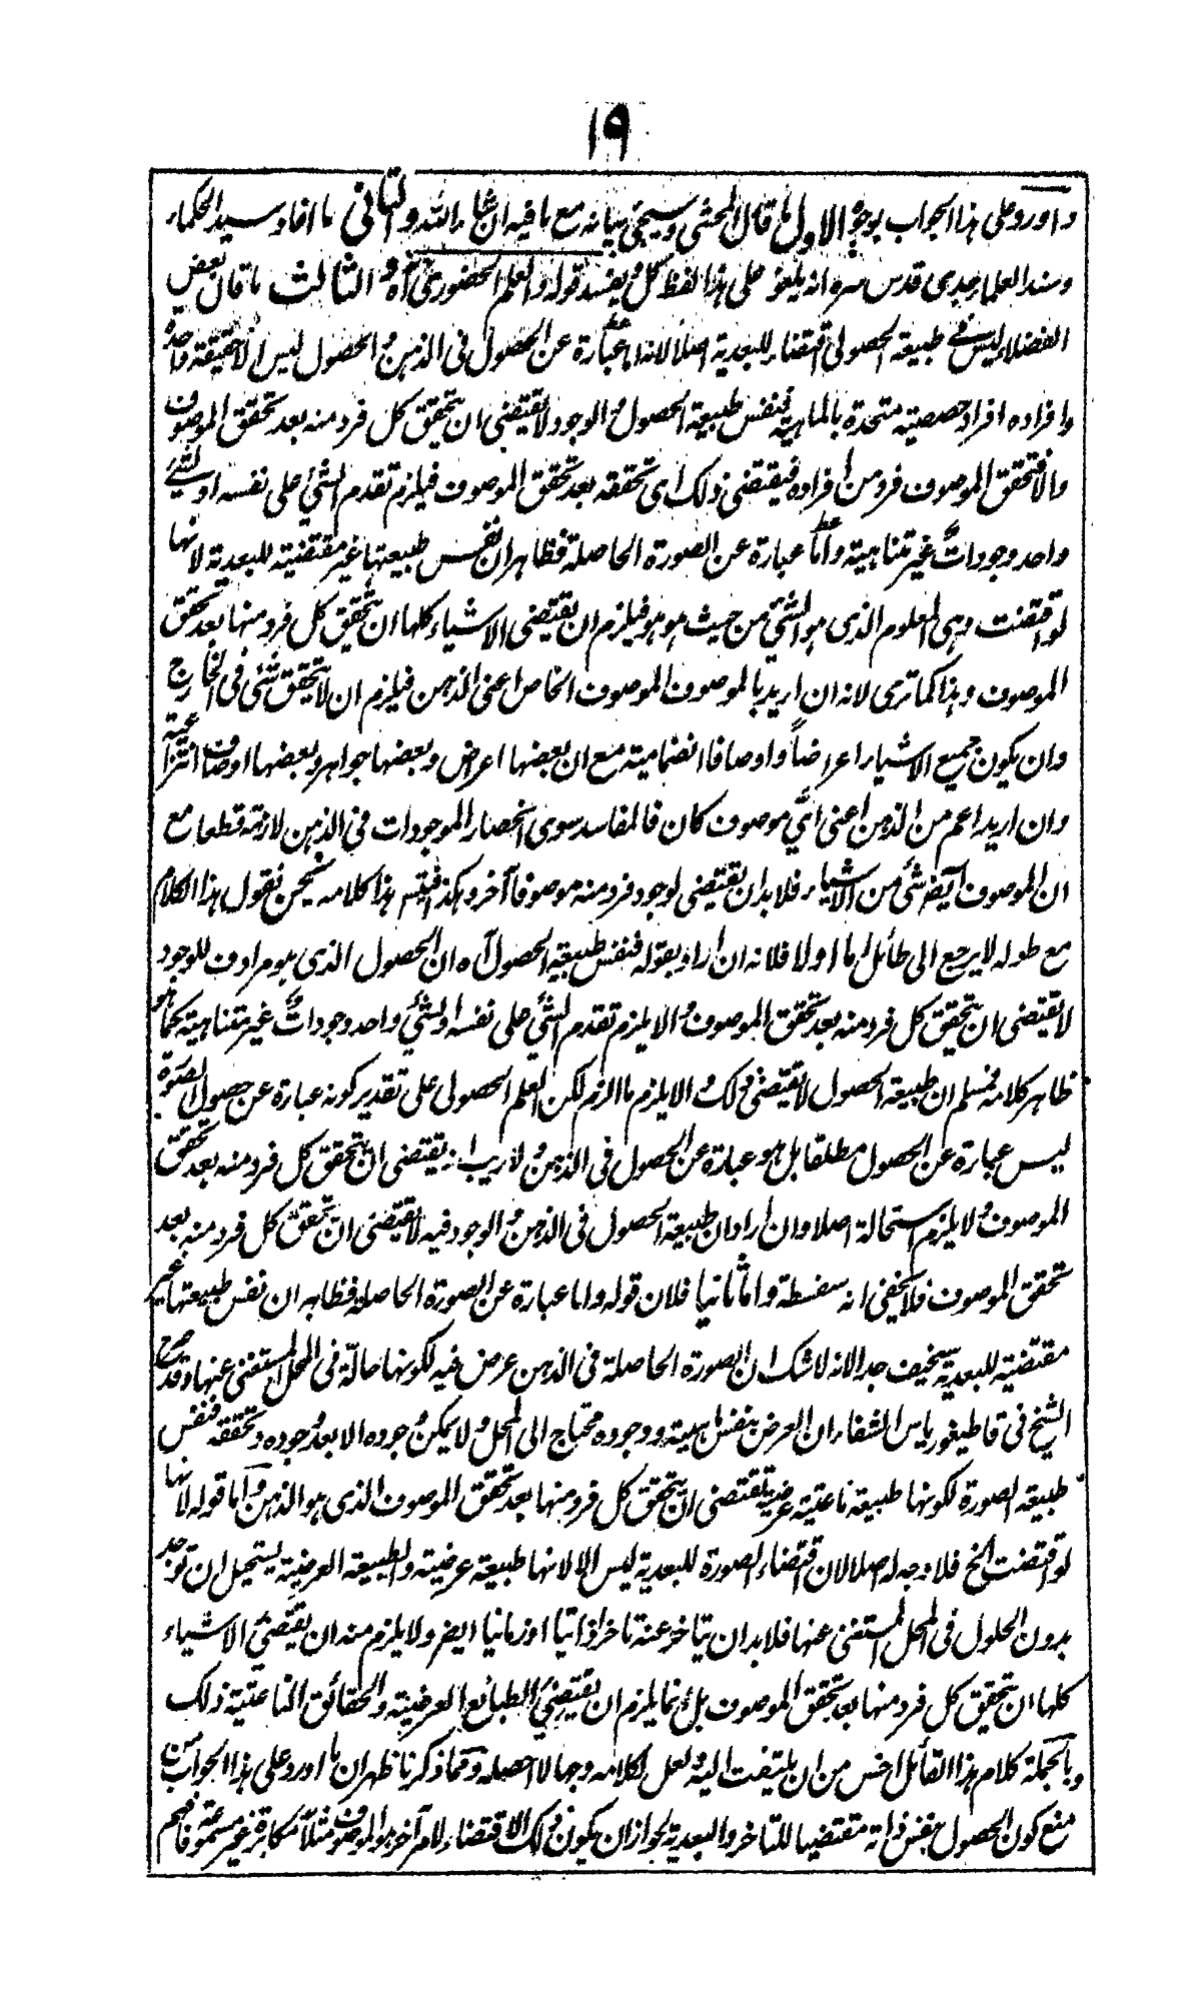 ١٩
واورد على هذا الجواب بوجوه الاول ما قال المحشي وسيجيء بيانه مع ما فيه ان شاء الله والثاني ما افاد سيد الحكماء
وسند العلماء جدي قدس سره انه يلغو على هذا لفظ كل ويفسد قوله والعلم الحضوري آه والثالث ما قال بعض
الفضلاء ليس في طبيعة الحصولي اقتضاء للبعدية اصلا لانه اما عبارة عن الحصول في الذهن والحصول ليس الا حقيقة واحدة
وافراده افراد حصصية متحدة بالماهية فنفس طبيعة الحصول والوجود لا تقتضي ان يتحقق كل فرد منه بعد تحقق الموصوف
والا فتحقق الموصوف فرد من افراده فيقتضي ذلك اي تحققه بعد تحقق الموصوف فيلزم تقدم الشيء على نفسه او لشيء
واحد وجودات غير متناهية واما عبارة عن الصورة الحاصلة فظاهر ان نفس طبيعتها غير مقتضية للبعدية لانها
لو اقتضت وهي المعلوم الذي هو الشيء من حيث هو هو فيلزم ان يقتضي الاشياء كلها ان يتحقق كل فرد منها بعد تحقق
الموصوف وهذا كما ترى لانه ان اريد بالموصوف الموصوف الخاص اعني الذهن فيلزم ان لا يتحقق شيء في الخارج
وان يكون جميع الاشياء اعراضا واوصافا انضمامية مع ان بعضها اعراض وبعضها جواهر وبعضها اوصاف انتزاعية
وان اريد اعم من الذهن اعني اي موصوف كان فالمفاسد سوى انحصار الموجودات في الذهن لازمة قطعا مع
ان الموصوف ايضا شيء من الاشياء فلا بد ان يقتضي لوجود فرد منه موصوفا آخر وهكذا فيتم هذا كلامه نحن نقول هذا الكلام
مع طوله لا يرجع الى طائل اما اولا فلانه ان اراد بقوله فنفس طبيعة الحصول آه ان الحصول الذي هو مرادف للوجود
لا يقتضي ان يتحقق كل فرد منه بعد تحقق الموصوف والا يلزم تقدم الشيء على نفسه او لشيء واحد وجودات غير متناهية كما هو
ظاهر كلامه فمسلم ان طبيعة الحصول لا تقتضي ذلك والا يلزم ما الزم لكن العلم الحصولي على تقدير كونه عبارة عن حصول الصورة
ليس عبارة عن الحصول مطلقا بل هو عبارة عن الحصول في الذهن ولا ريب انه يقتضي ان يتحقق كل فرد منه بعد تحقق
الموصوف ولا يلزم استحالة اصلا وان اراد ان طبيعة الحصول في الذهن والوجود فيه لا تقتضي ان يتحقق كل فرد منه بعد
تحقق الموصوف فلا يخفى انه سفسطة واما ثانيا فلان قوله واما عبارة عن الصورة الحاصلة فظاهر ان نفس طبيعتها غير
مقتضية للبعدية سخيف جدا لانه لا شك ان الصورة الحاصلة في الذهن عرض فيه لكونها حالة في المحل المستغني عنها وقد صرح
الشيخ في قاطيغورياس الشفاء ان العرض بنفس ماهيته ووجوده محتاج الى المحل ولا يمكن وجوده الا بعد وجوده وتحققه فنفس
طبيعة الصورة لكونها طبيعة ناعتية عرضية تقتضي ان يتحقق كل فرد منها بعد تحقق الموصوف الذي هو الذهن واما قوله لانها
لو اقتضت الخ فلا وجه له اصلا لان اقتضاء الصورة للبعدية ليس الا لانها طبيعة عرضية والطبيعة العرضية يستحيل ان توجد
بدون الحلول في المحل المستغني عنها فلا بد ان يتاخر عنه تاخرا ذاتيا او زمانيا ايضا ولا يلزم منه ان يقتضي الاشياء
كلها ان يتحقق كل فرد منها بعد تحقق الموصوف بل انما يلزم ان يقتضي الطبائع العرضية والحقائق الناعتية ذلك
وبالجملة كلام هذا القائل اخس من ان يلتفت اليه ولعل لكلامه وجها لا احصله ومما ذكرنا ظهر ان ما اورد على هذا الجواب من
منع كون الحصول بنفس ذاته مقتضيا للتاخر والبعدية لجواز ان يكون ذلك الاقتضاء لامر آخر هو الموصوف مثلا مكابرة غير مسموعة فافهم